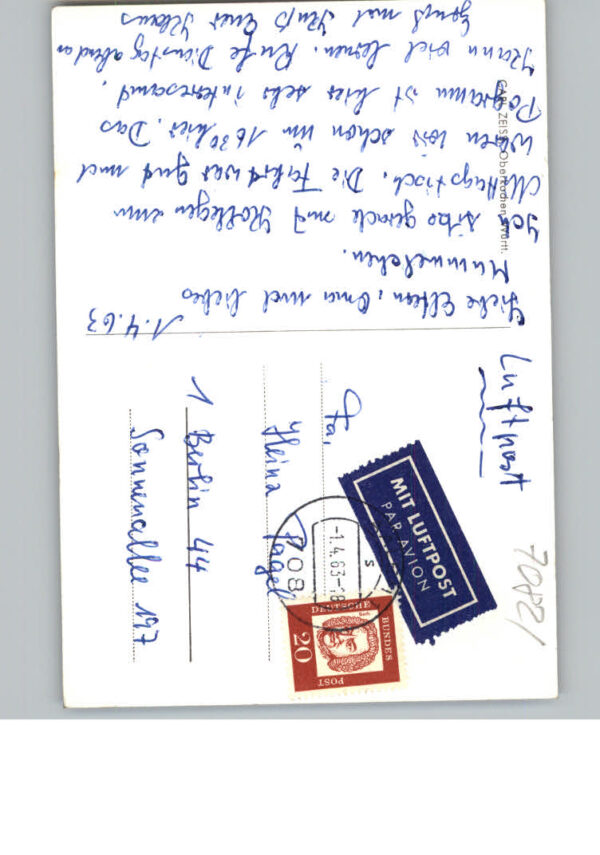 1.4.63
Liebe Eltern, Oma und liebes
Mummelchen.
Ich sitze gerade mit Kollegen am
Mittagstisch. Die Fahrt war gut und
waren wir schon um 1630 hier. Das
Programm ist hier sehr interessant.
Kann viel lernen. Rufe Dienstag abend an
Gruß und Kuß Euer Klaus
CARL ZEISS Oberkochen/Württ.
Luftpost
Fa.
Heinz Pagel
1 Berlin 44
Sonnenallee 197
MIT LUFTPOST
PAR AVION
708
-1.4.63-18
s
DEUTSCHE BUNDESPOST
20